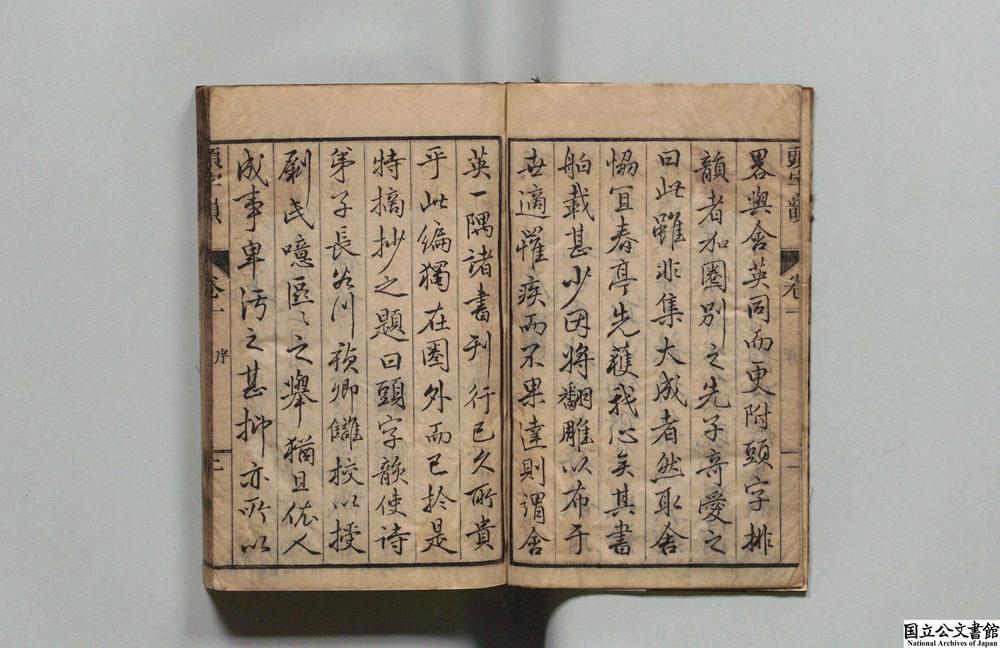 畧與含英同而更附頭字排
韻者加圈別之先子奇愛之
曰此雖非集大成者然取舍
恊宜春亭先獲我心矣其書
舶載甚少因將翻雕以布于
世適罹疾而不果達則謂含
英一隅諸書刊行已久所貴
乎此編獨在圈外而已於是
特摘抄之題曰頭字韻使詩
弟子長谷川　卿讎校以授
剞氏噫區〻之舉猶且依人
成事卑污之甚抑亦所以
頭字韻
卷一
頭字韻
卷一
序
二
国立公文書館
National Archives of Japan